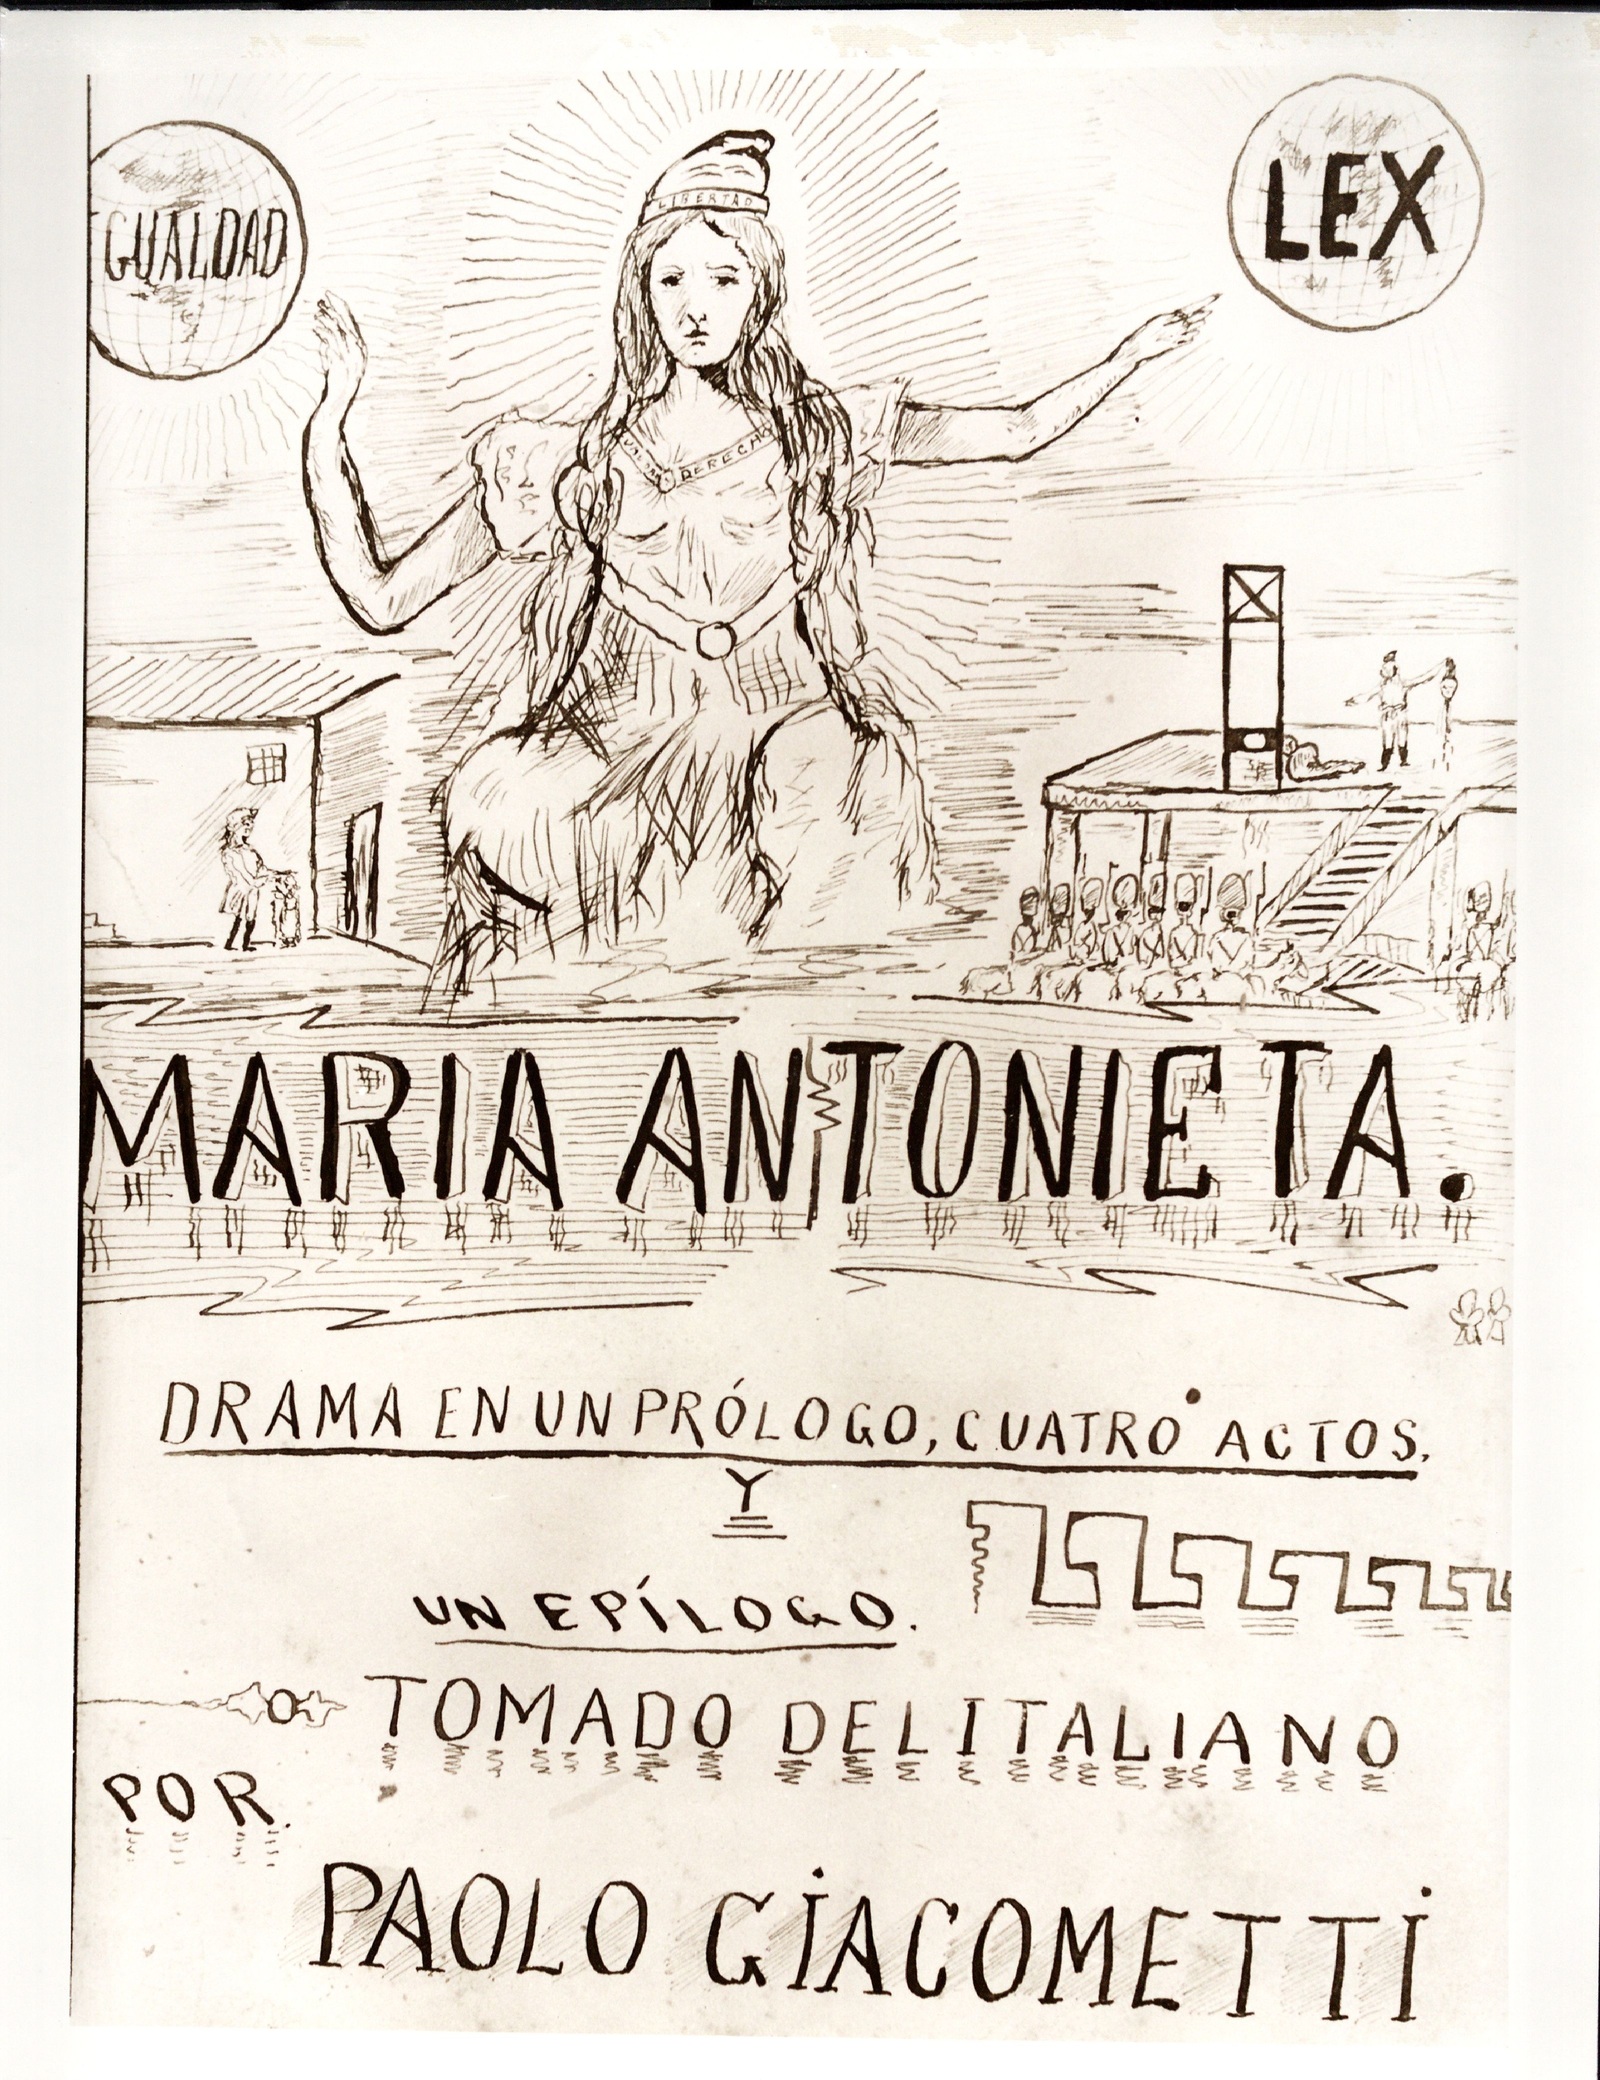 GUALDAD
LEX
LIBERTAD
DERECHO
MARIA ANTONIETA.
DRAMA EN UN PRÓLOGO, CUATRO ACTOS.
Y
UN EPÍLOGO.
TOMADO DEL ITALIANO
POR.
PAOLO GIACOMETTI